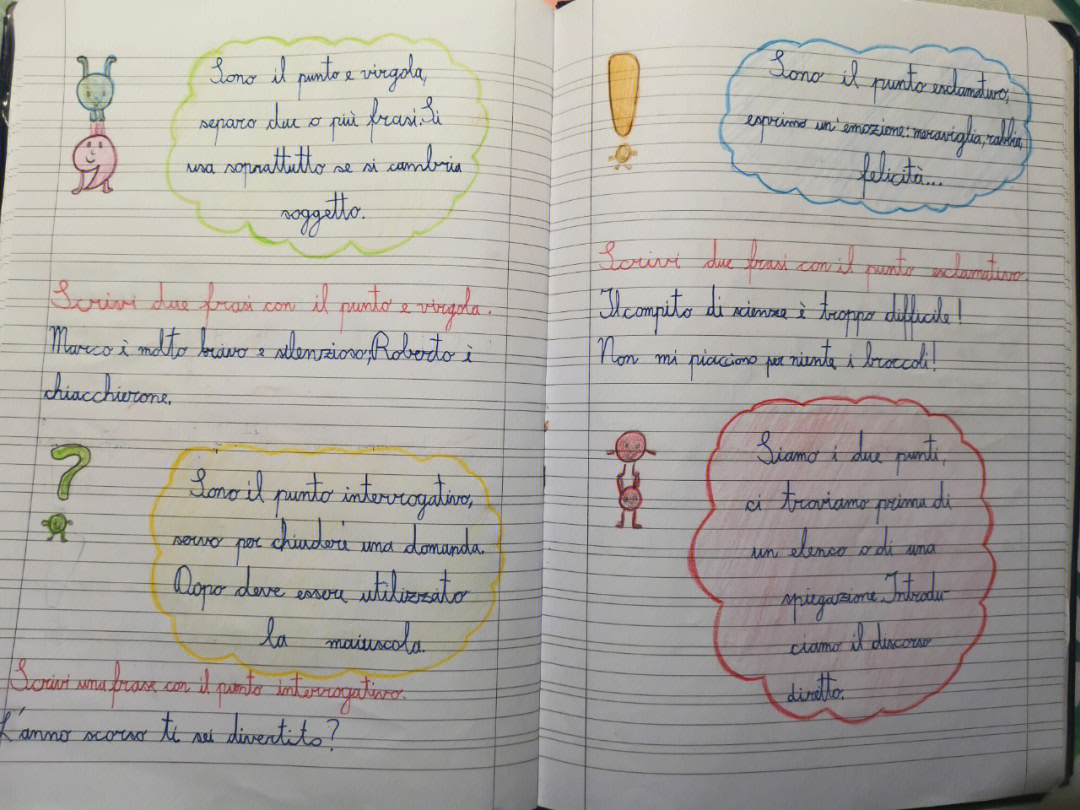 Sono il punto e virgola,
separo due o più frasi. Si
usa soprattutto se si cambia
soggetto.
Scrivi due frasi con il punto e virgola.
Marco è molto bravo e silenzioso; Roberto è
chiacchierone.
Sono il punto interrogativo,
servo per chiudere una domanda.
Dopo deve essere utilizzato
la maiuscola.
Scrivi una frase con il punto interrogativo.
L'anno scorso ti sei divertito?
Sono il punto esclamativo,
esprimo un'emozione: meraviglia, rabbia,
felicità...
Scrivi due frasi con il punto esclamativo.
Il compito di scienze è troppo difficile!
Non mi piacciono per niente i broccoli!
Siamo i due punti,
ci troviamo prima di
un elenco o di una
spiegazione. Introdu-
ciamo il discorso
diretto.